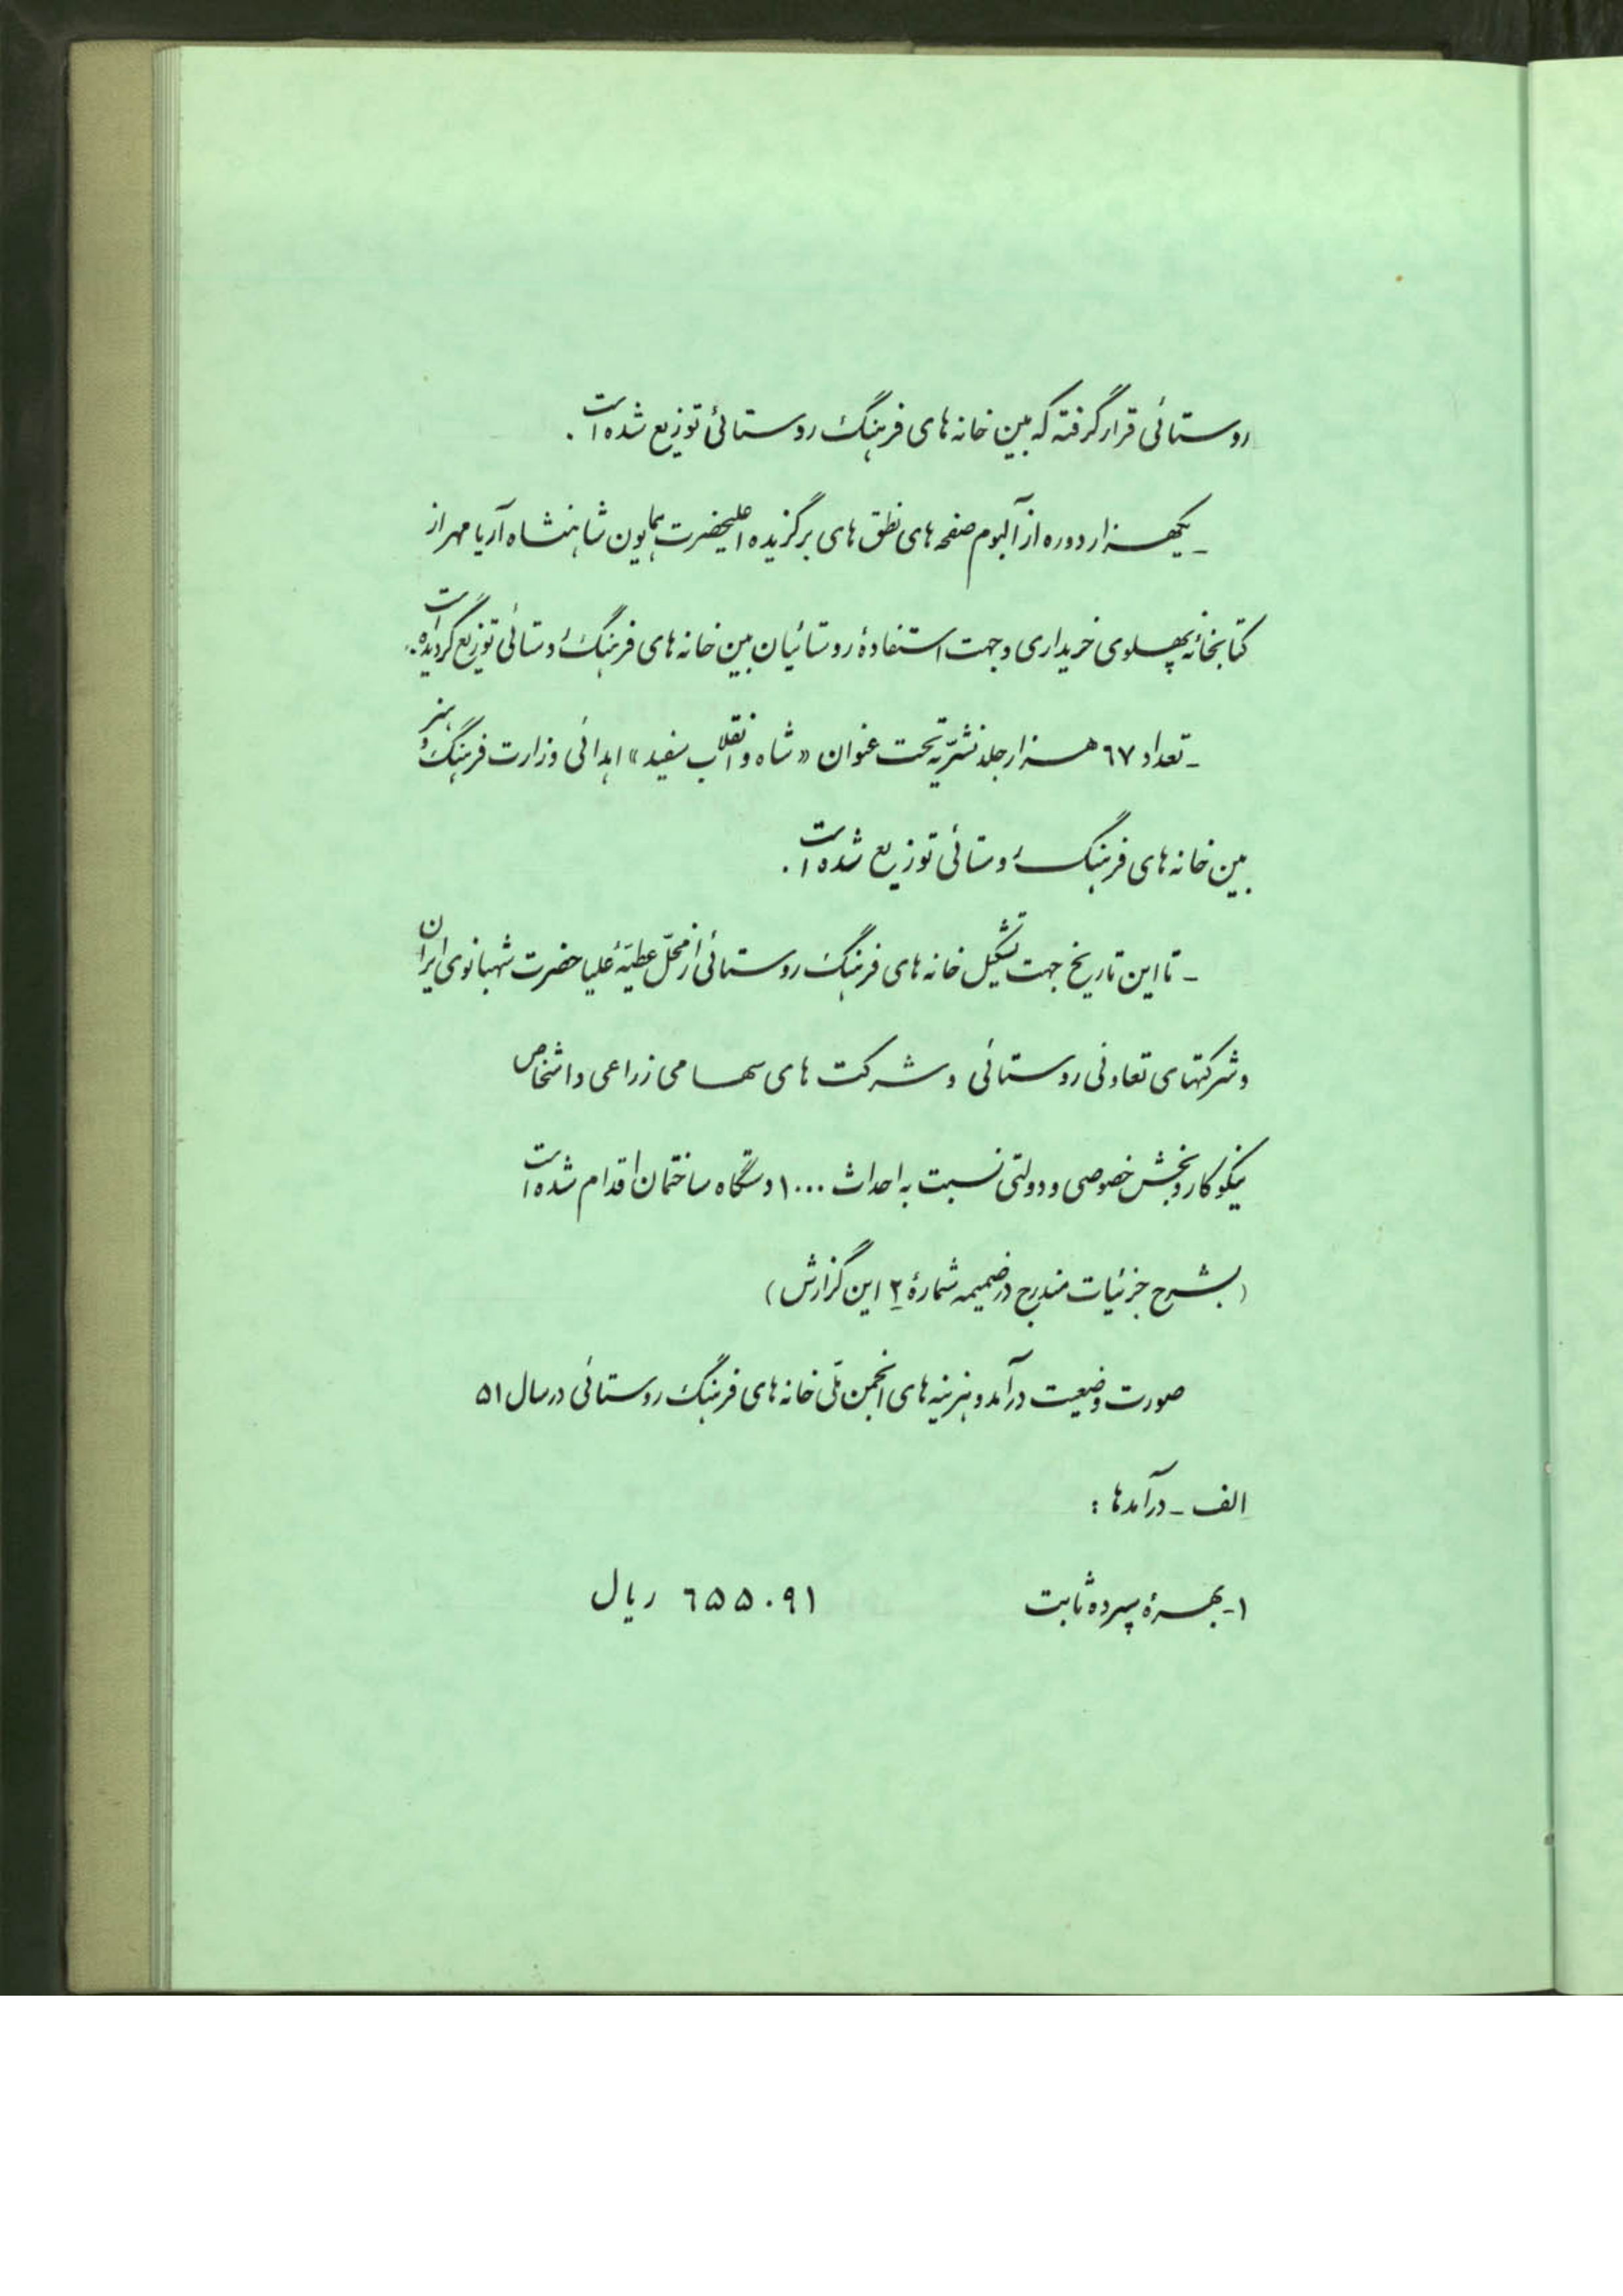 روستائی قرار گرفته که بین خانه های فرهنگ روستائی توزیع شده است .
ـ یکهزار دوره از آلبوم صفحه های نطق های برگزیده اعلیحضرت همایون شاهنشاه آریامهر از
کتابخانه پهلوی خریداری و جهت استفادهٔ روستائیان بین خانه های فرهنگ روستائی توزیع گردیده است .
ـ تعداد ٦٧ هزار جلد نشریّه تحت عنوان « شاه و انقلاب سفید » اهدائی وزارت فرهنگ و هنر
بین خانه های فرهنگ روستائی توزیع شده است .
ـ تا این تاریخ جهت تشکیل خانه های فرهنگ روستائی از محلّ عطیّهٔ علیاحضرت شهبانوی ایران
و شرکتهای تعاونی روستائی و شرکت های سهامی زراعی و اشخاص
نیکوکار و بخش خصوصی و دولتی نسبت به احداث ۱۰۰۰ دستگاه ساختمان اقدام شده است
( بشرح جزئیات مندرج در ضمیمه شمارهٔ ۲ این گزارش )
صورت وضعیت درآمد و هزینه های انجمن ملّی خانه های فرهنگ روستائی در سال ۵۱
الف ـ درآمدها :
۱ـ بهرهٔ سپرده ثابت ٦۵۵۰۹۱ ریال